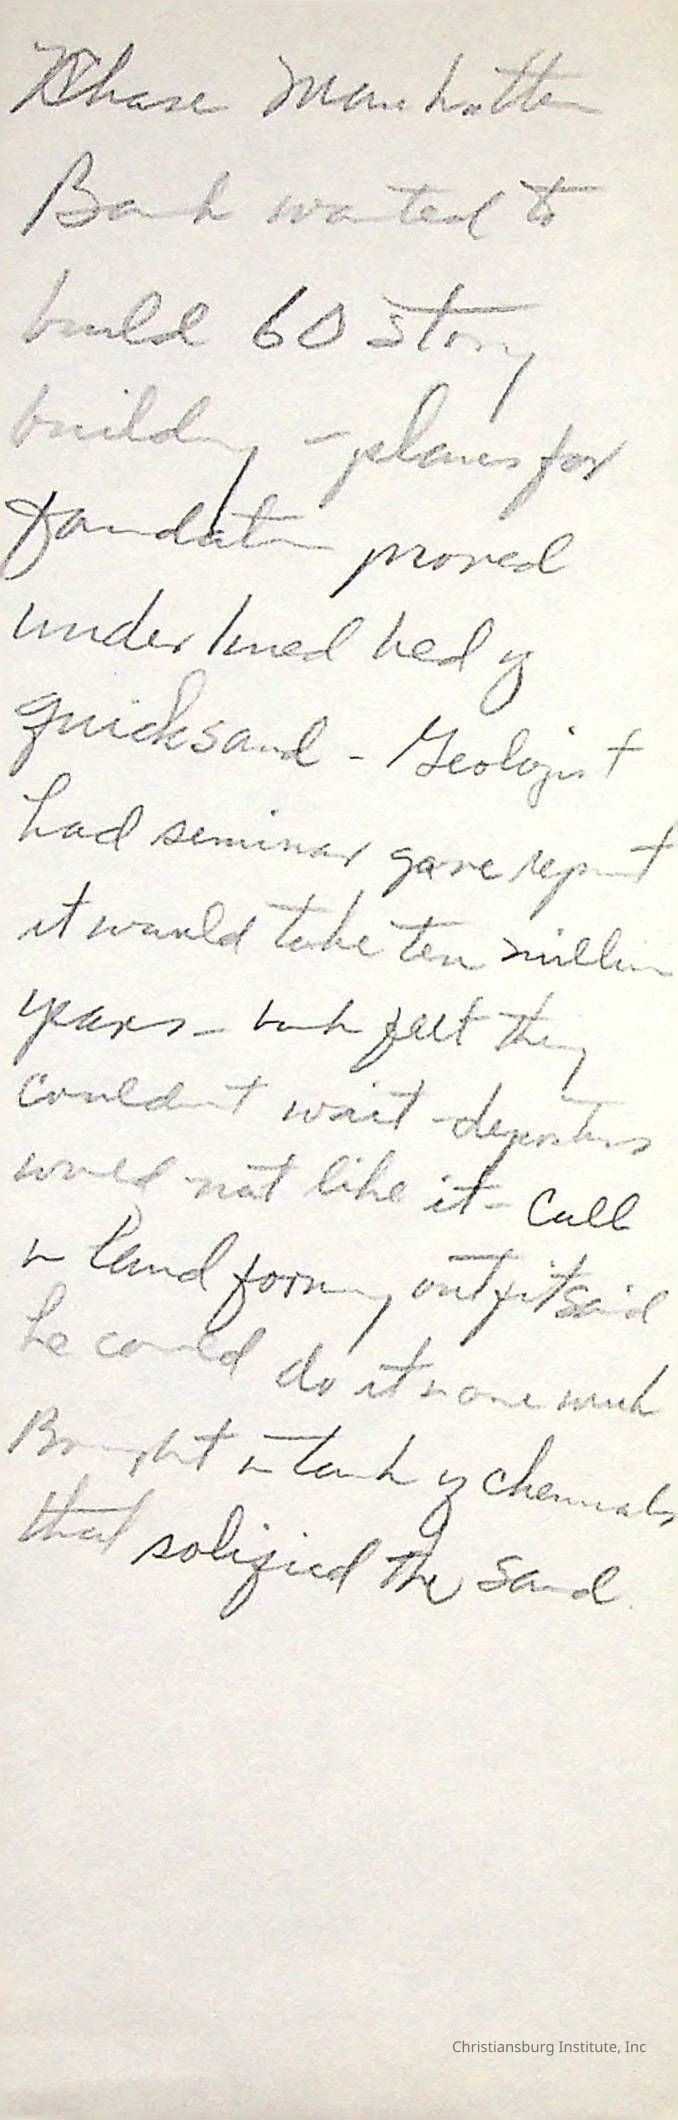 Chase Manhatten
Bank wanted to
build 60 story
building - planes for
foundation proved
underlined bed of
quicksand - Geologist
had seminar gave report
it would take ten million
years - bank felt they
couldn't wait - depositors
would not like it - Call
in land forming outfit said
he could do it in one week
Brought in tank of chemicals
that solified the sand.
Christiansburg Institute, Inc